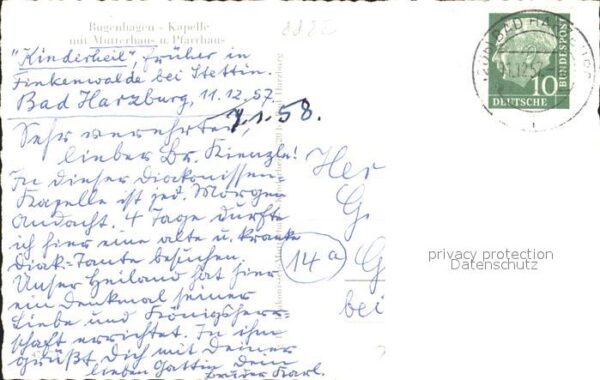 Bugenhagen - Kapelle
mit Mutterhaus u. Pfarrhaus
"Kinderheil", früher in
Finkenwalde bei Stettin.
Bad Harzburg, 11.12.57
7.1.58.
Sehr verehrter,
lieber Br. Kienzle!
In dieser Diakonissen-
Kapelle ist jed. Morgen
Andacht. 4 Tage durfte
ich hier eine alte u. kranke
Diak.-Tante besuchen.
Unser Heiland hat hier
ein Denkmal seiner
Liebe und Königsherr-
schaft errichtet. In ihm
grüßt Dich mit Deiner
lieben Gattin Dein
Bruder Karl.
Her
G
14a
G
bei
BAD HARZBURG
11.12.57
10
DEUTSCHE
BUNDESPOST
privacy protection
Datenschutz